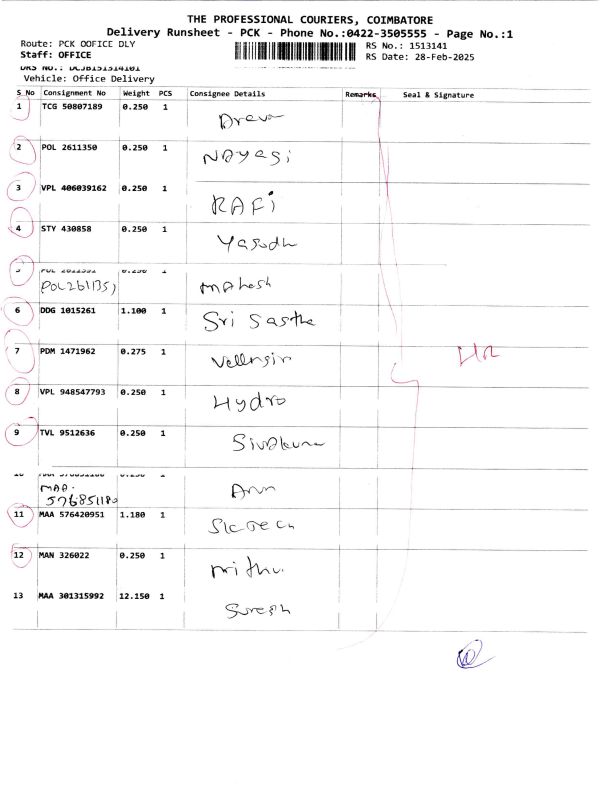 THE PROFESSIONAL COURIERS, COIMBATORE
Delivery Runsheet - PCK - Phone No.:0422-3505555 - Page No.:1
Route: PCK OOFICE DLY RS No.: 1513141
Staff: OFFICE RS Date: 28-Feb-2025
DRS No.: DCJB151314101
Vehicle: Office Delivery
S No Consignment No Weight PCS Consignee Details Remarks Seal & Signature
1 TCG 50807189 0.250 1
2 POL 2611350 0.250 1
Nayagi
3 VPL 406039162 0.250 1
RAFi
4 STY 430858 0.250 1
Yasodh
5 POL 2611351 0.250 1
POL2611351 Mahesh
6 DDG 1015261 1.100 1
Sri Sastha
7 PDM 1471962 0.275 1
8 VPL 948547793 0.250 1
Hydro
9 TVL 9512636 0.250 1
Sivakuma
10 MAA 576851180 0.250 1
MAA- Arun
576851180
11 MAA 576420951 1.180 1
12 MAN 326022 0.250 1
Mithu.
13 MAA 301315992 12.150 1
Suresh